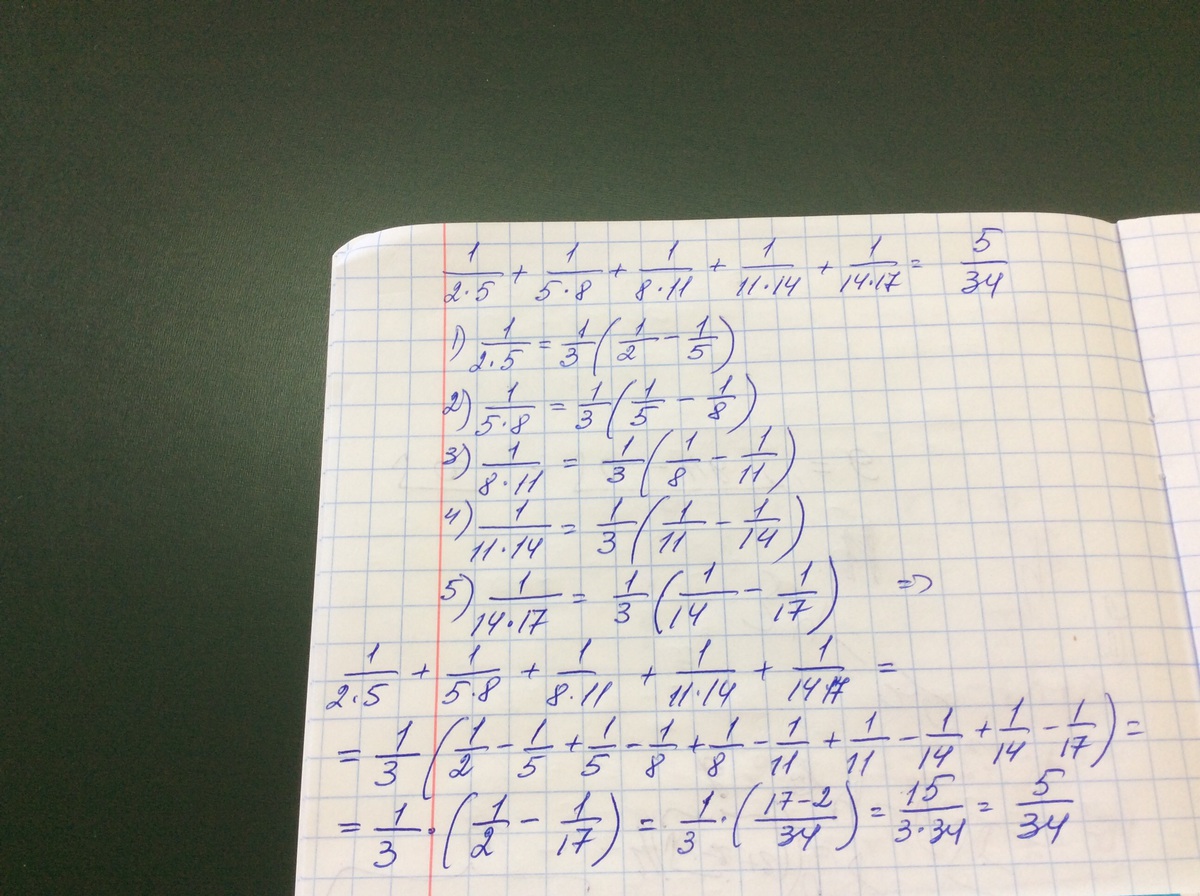 1/(2·5) + 1/(5·8) + 1/(8·11) + 1/(11·14) + 1/(14·17) = 5/34
1) 1/(2·5) = 1/3 (1/2 − 1/5)
2) 1/(5·8) = 1/3 (1/5 − 1/8)
3) 1/(8·11) = 1/3 (1/8 − 1/11)
4) 1/(11·14) = 1/3 (1/11 − 1/14)
5) 1/(14·17) = 1/3 (1/14 − 1/17) =>
1/(2·5) + 1/(5·8) + 1/(8·11) + 1/(11·14) + 1/(14·17) =
= 1/3 (1/2 − 1/5 + 1/5 − 1/8 + 1/8 − 1/11 + 1/11 − 1/14 + 1/14 − 1/17) =
= 1/3 · (1/2 − 1/17) = 1/3 · ((17−2)/34) = 15/(3·34) = 5/34